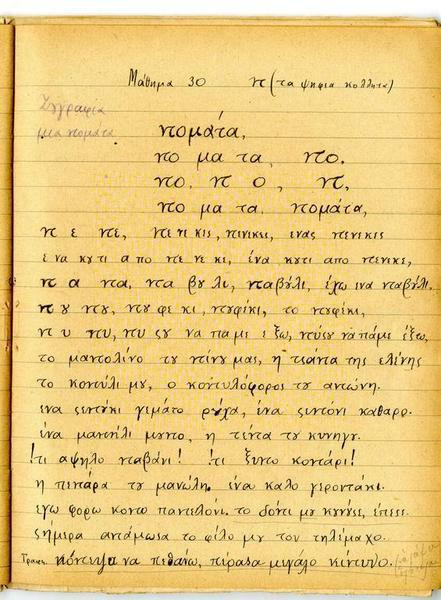 Μάθημα 30 ντ (τα ψηφια κολλητα)
Ζυγραφια
μια ντομάτα
ντομάτα,
ντο μα τα, ντο.
ντο, ντ ο, ντ,
ντο μα τα, ντομάτα,
ντ ε ντε, ντε νε κες, ντενεκες, ενας ντενεκες
ενα κυτι απο ντε νε κε, ένα κυτι απο ντενεκε,
ντ α ντα, ντα βυ λι, νταβύλι, έχω ενα νταβύλι.
ντ υ ντυ, ντυ φε κι, ντυφέκι, το ντυφέκι,
ντ υ ντυ, ντυ συ να πα με ε ξω, ντύσυ να πάμε έξω,
το μαντολίνο τυ ντίνυ μας, η τσαντα της ελένης
το κοντύλι μυ, ο κοντυλόφορος τυ αντώνη.
ενα σεντύκι γεμάτο ρύχα, ένα σεντόνι καθαρο.
ένα μαντήλι, η τέντα τυ κυνηγυ.
!τι αψηλο νταβάνι! !τι κοντάρι!
η πεντάρα τυ μανώλη. ένα καλο γεροντάκι.
εγω φορω κοντο παντελόνι. το δόντι μυ, έπεσε.
σήμερα αντάμωσα το φίλο μυ τον τηλέμαχο.
κόντεψα να πεθάνω, πέρασα μεγάλο κίντυνο.